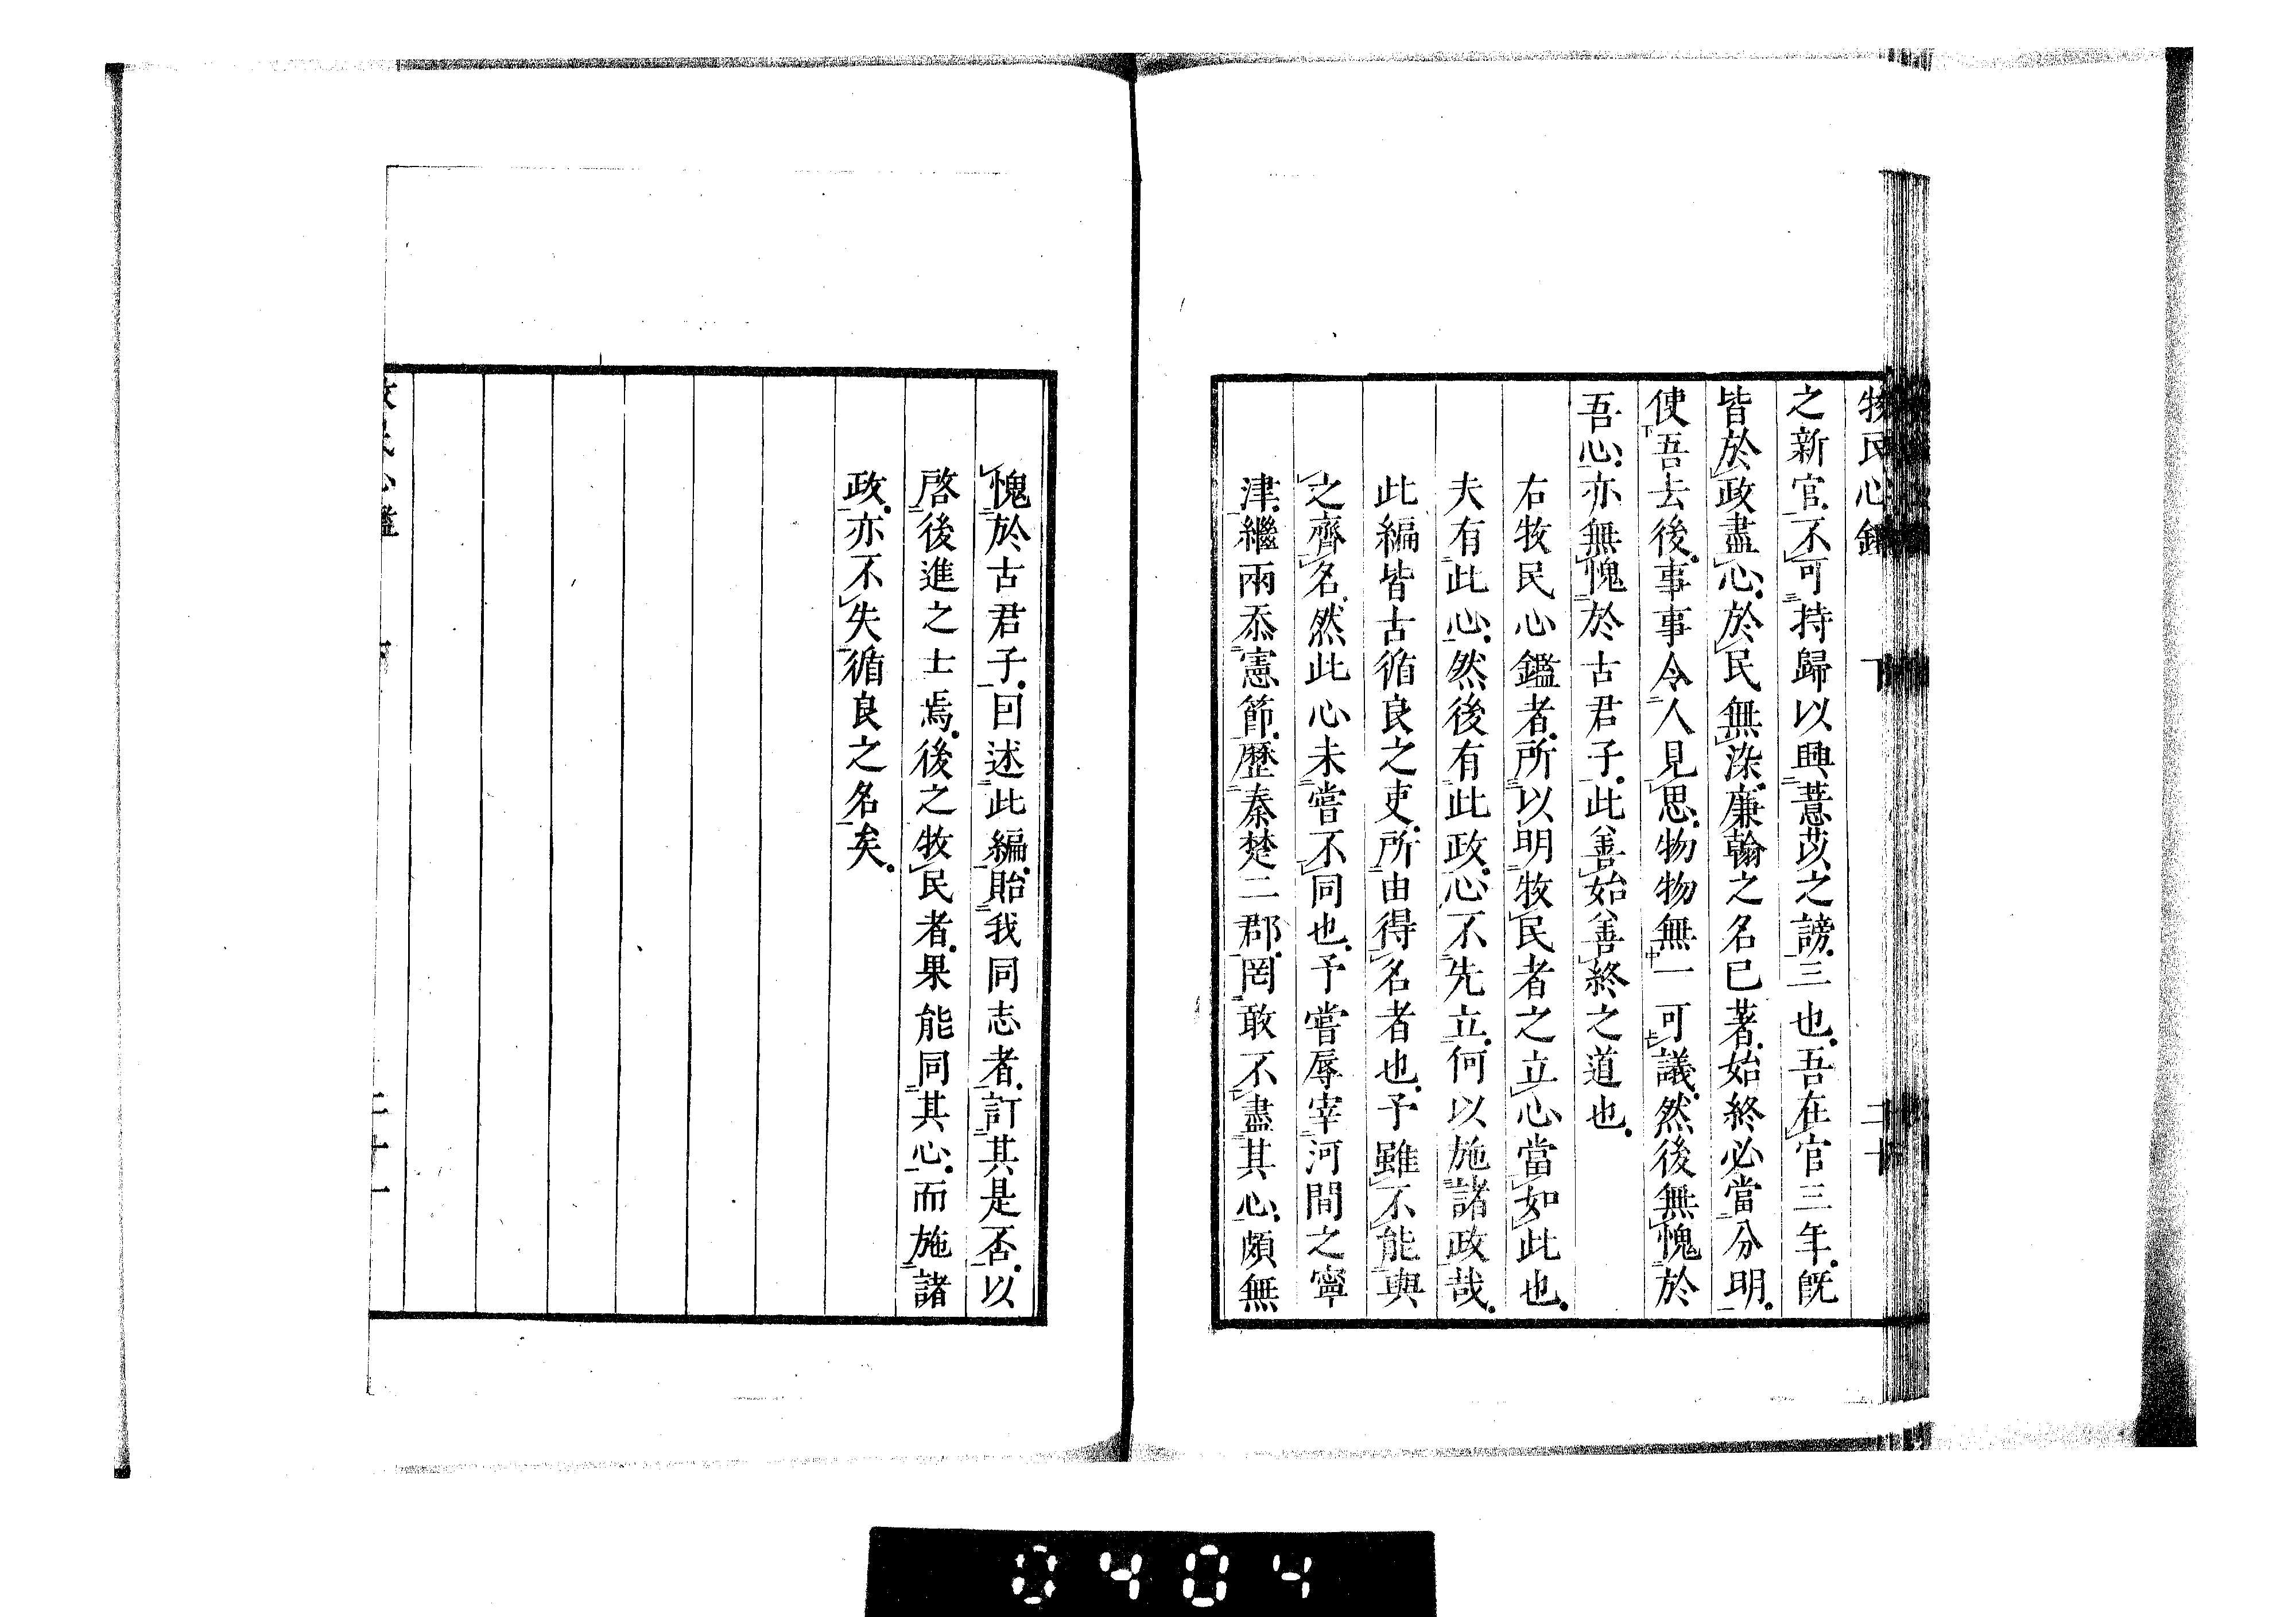 牧民心鑑 下 二十
之新官不可持歸以興薏苡之謗三也吾在官三年旣
皆於政盡心於民無染廉翰之名已著始終必當分明
使吾去後事事令人見思物物無一可議然後無愧於
吾心亦無愧於古君子此善始善終之道也
右牧民心鑑者所以明牧民者之立心當如此也
夫有此心然後有此政心不先立何以施諸政哉
此編皆古循良之吏所由得名者也予雖不能與
之齊名然此心未嘗不同也予嘗辱宰河間之寧
津繼兩忝憲節歷秦楚二郡罔敢不盡其心頗無
愧於古君子囙述此編貽我同志者訂其是否以
啓後進之士焉後之牧民者果能同其心而施諸
政亦不失循良之名矣
二十一
0404